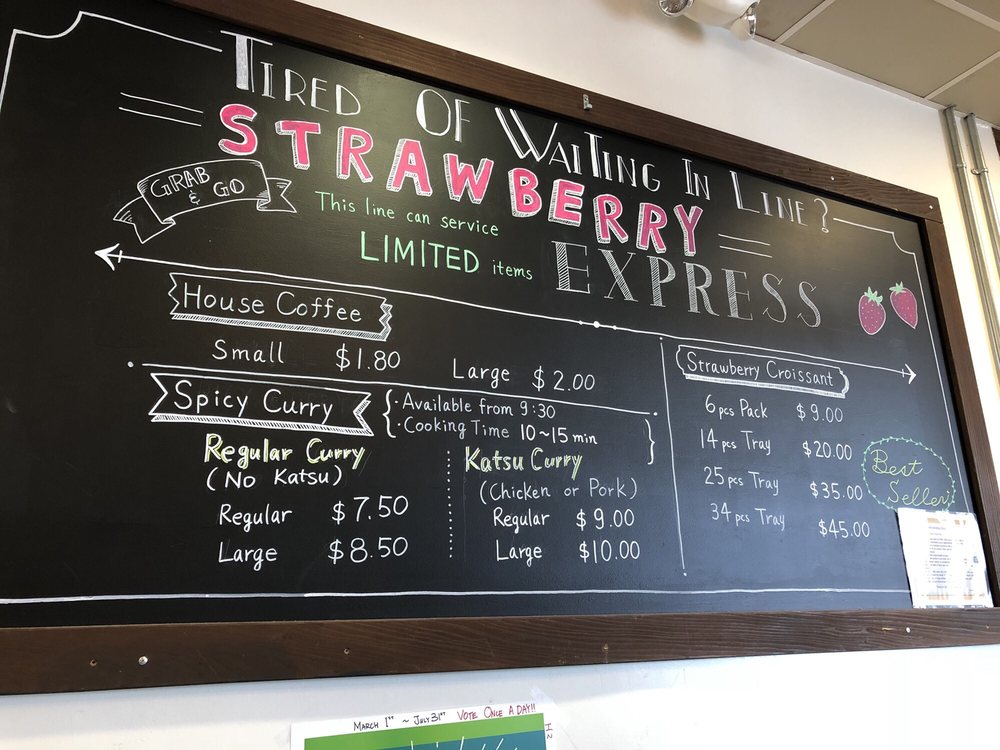 TIRED OF WAITING IN LINE?
STRAWBERRY
EXPRESS
GRAB
& GO
This line can service
LIMITED items
House Coffee
Small $1.80
Large $2.00
Spicy Curry
· Available from 9:30
· Cooking Time 10~15 min
Regular Curry
(No Katsu)
Regular $7.50
Large $8.50
Katsu Curry
(Chicken or Pork)
Regular $9.00
Large $10.00
Strawberry Croissant
6 pcs Pack $9.00
14 pcs Tray $20.00
25 pcs Tray $35.00
34 pcs Tray $45.00
Best
Seller!
MARCH 1ST ~ JULY 31ST VOTE ONCE A DAY!!